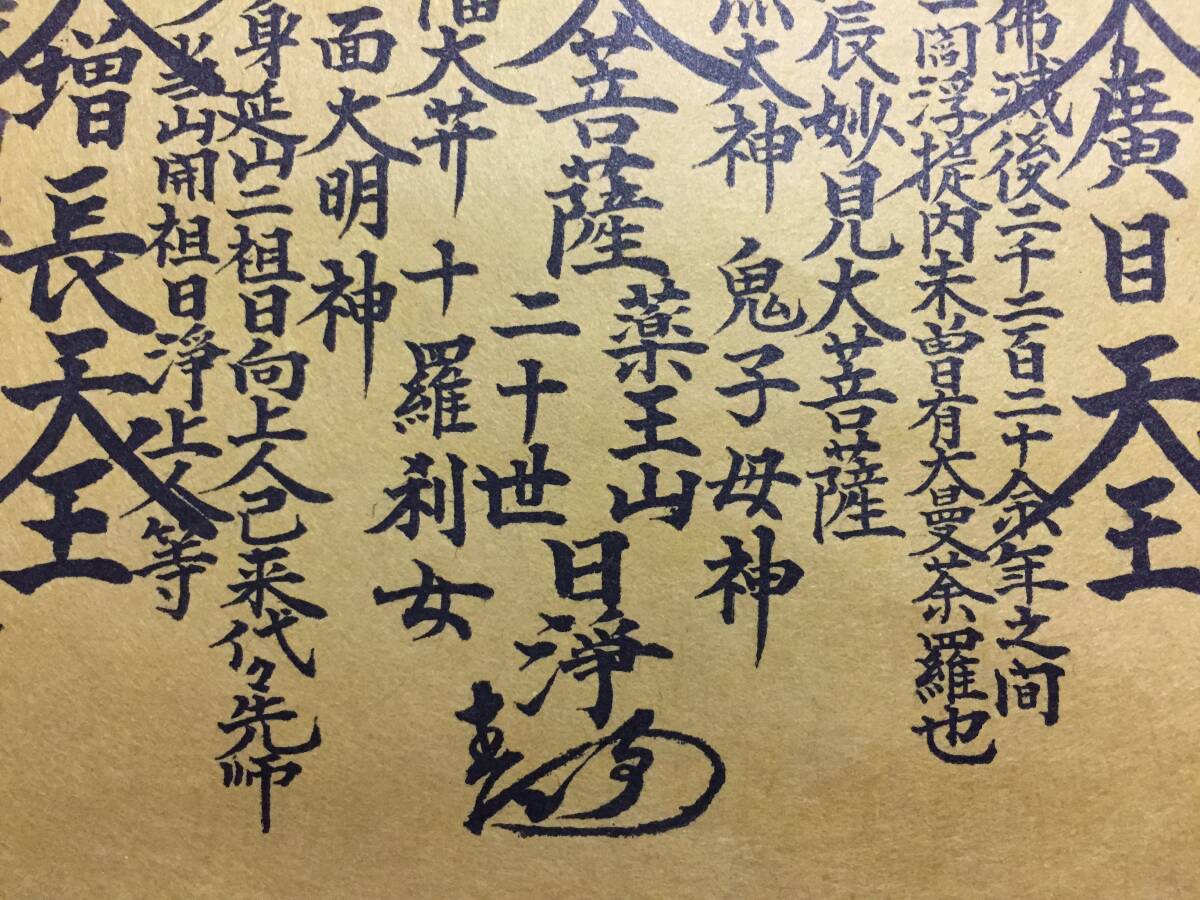 廣目天王
佛滅後二千二百二十余年之间
一閻浮提内未曽有大曼荼羅也
辰妙見大菩薩
太神
鬼子母神
菩薩
薬王山
二十世
日淨
大井
十羅刹女
面大明神
身延山二祖日向上人已来代々先师
当山開祖日淨上人等
増長天王